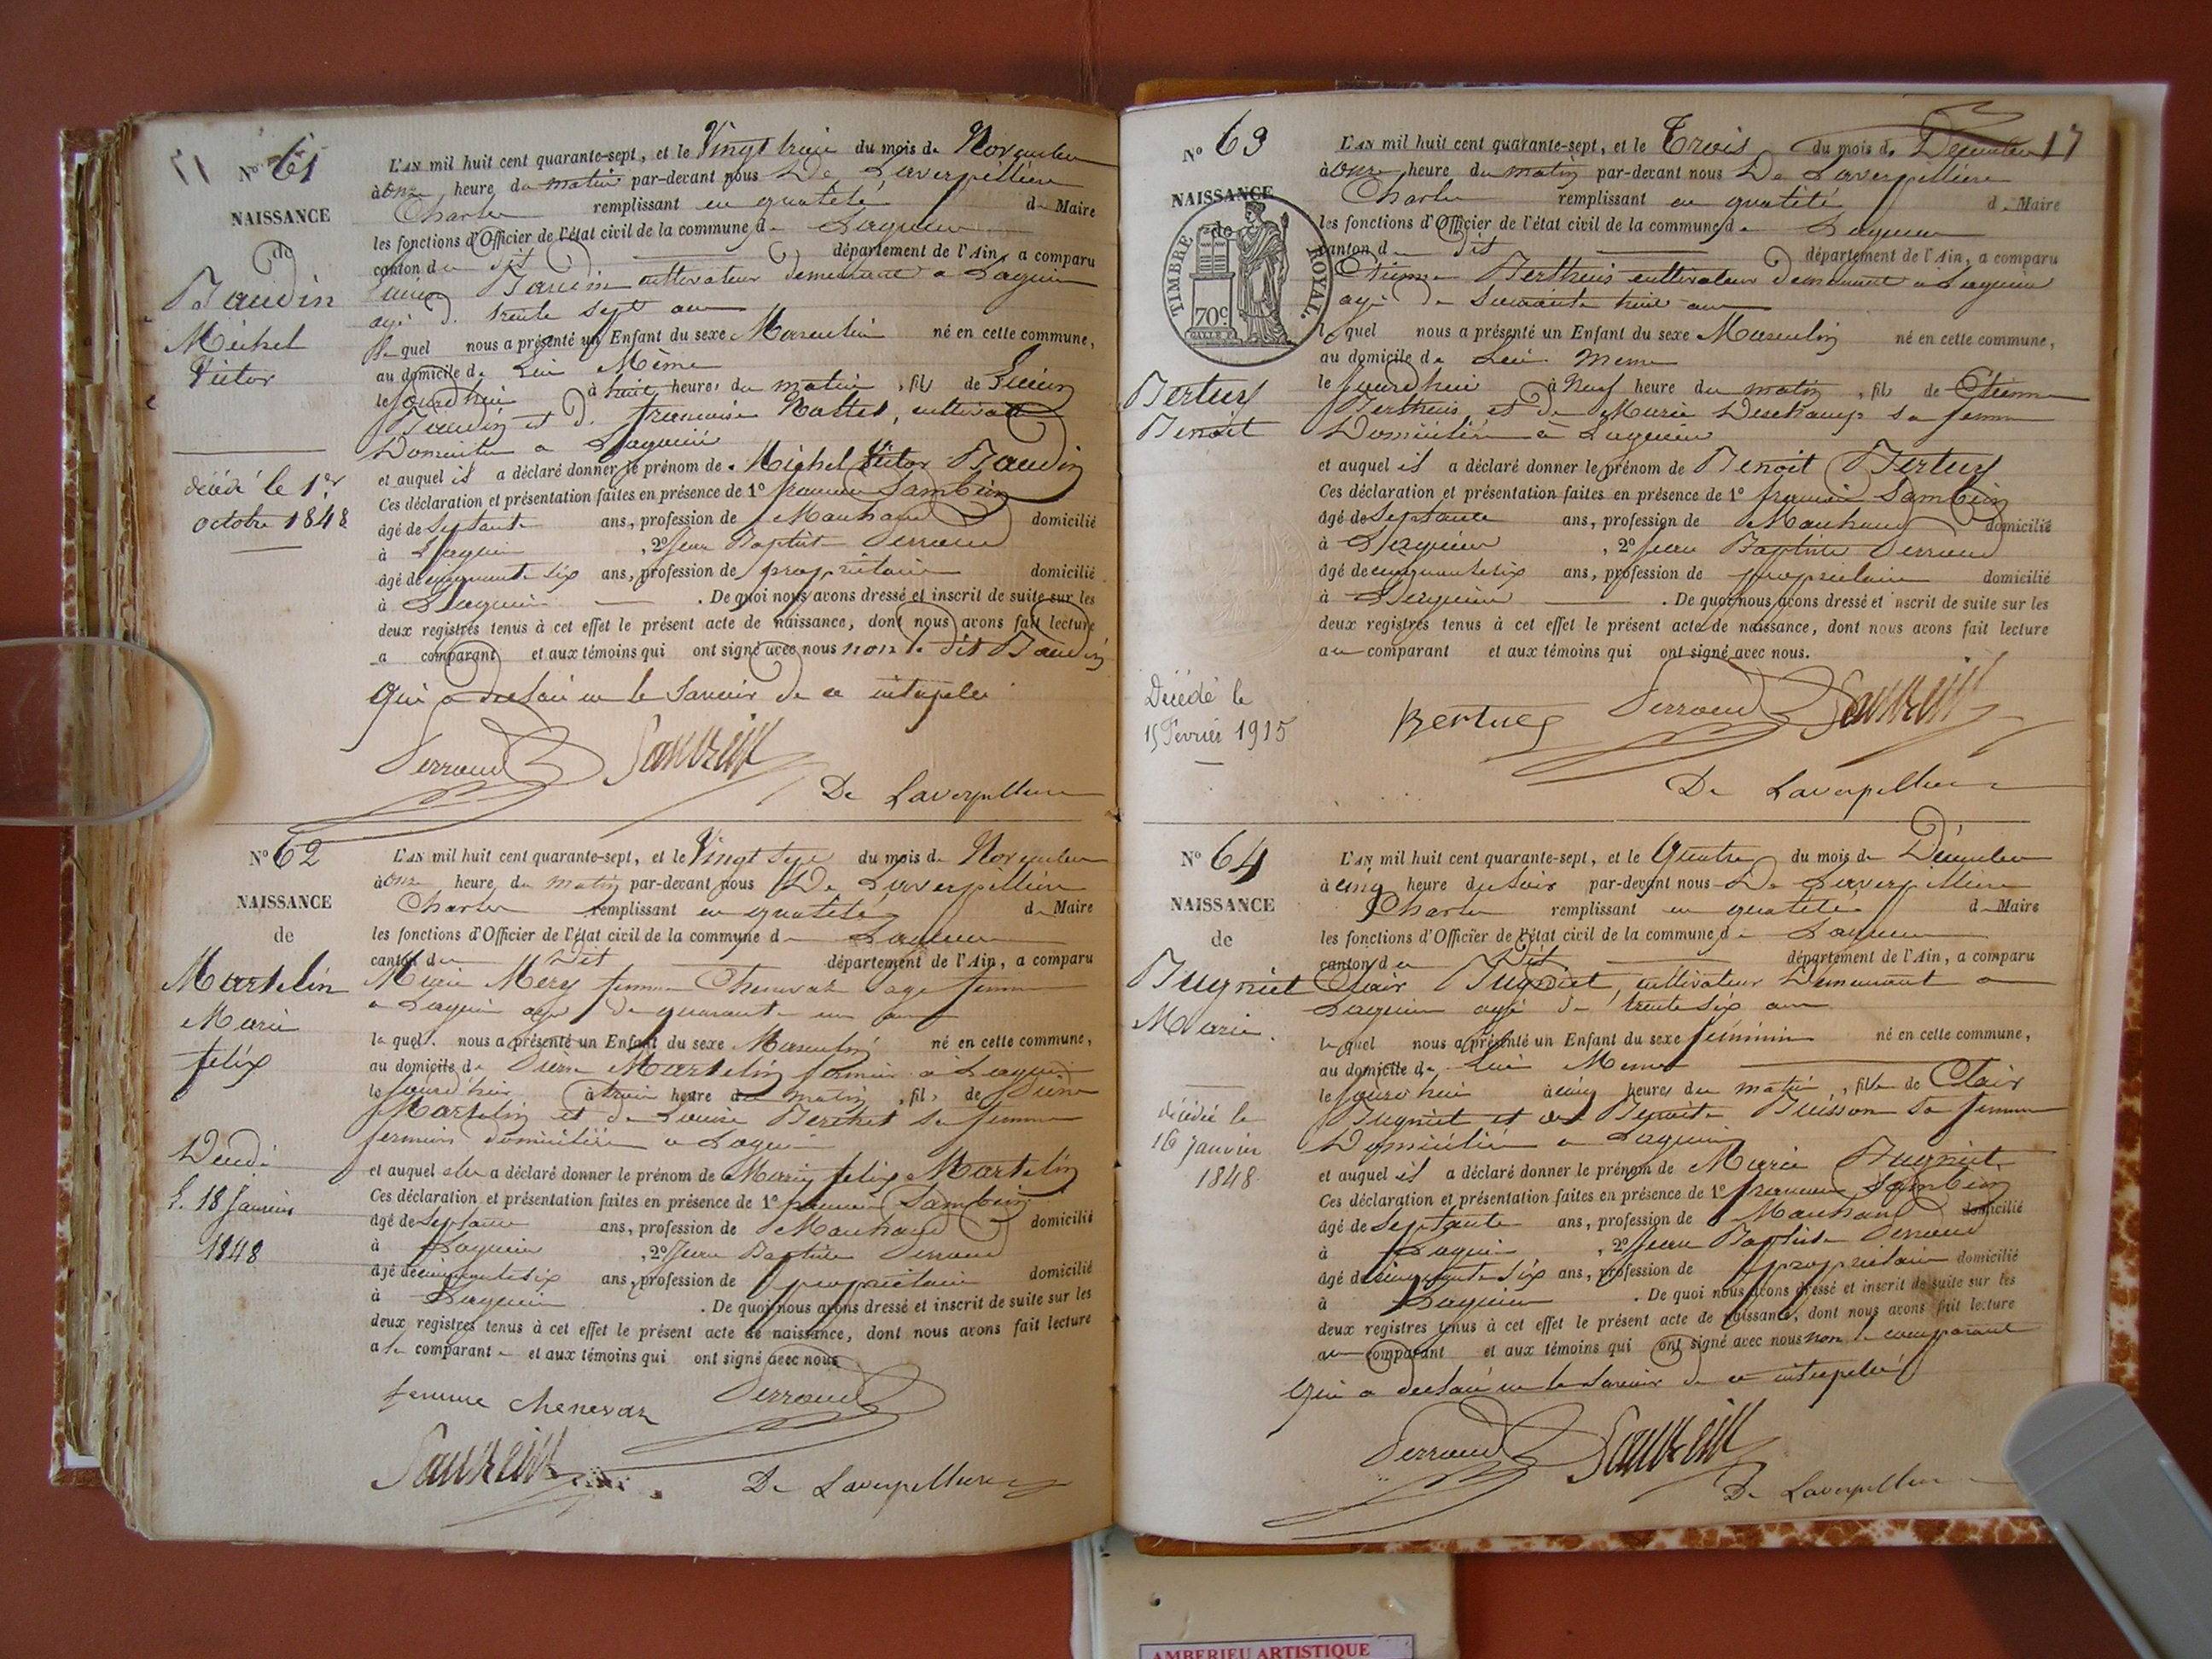 Nº 61
NAISSANCE
de
Baudin
Michel
Victor
décédé le 1er
octobre 1848
L'AN mil huit cent quarante-sept, et le Vingt trois du mois de Novembre
à onze heure du matin par-devant nous De Laverpillière
Charles remplissant en qualité de Maire
les fonctions d'Officier de l'état civil de la commune de Lagnieu
canton du dit département de l'Ain, a comparu
Baudin cultivateur demeurant a Lagnieu
agé de trente sept ans
le quel nous a présenté un Enfant du sexe Masculin né en cette commune,
au domicile de Lui Même
le jourd'hui à huit heures du matin, fils de
Baudin et de francoise
Domiciliés a Lagnieu
et auquel il a déclaré donner le prénom de Michel Victor Baudin
Ces déclaration et présentation faites en présence de 1º Sambein
âgé de Septante ans, profession de Marchand domicilié
à Lagnieu, 2º Jean Baptiste Perroud
âgé de cinquante six ans, profession de propriétaire domicilié
à Lagnieu. De quoi nous avons dressé et inscrit de suite sur les
deux registres tenus à cet effet le présent acte de naissance, dont nous avons fait lecture
au comparant et aux témoins qui ont signé avec nous non le dit Baudin
Qui a declaré ne le savoir de ce interpelé
Perroud Sambein
De Laverpillière
Nº 62
NAISSANCE
de
Martelin
Marie
félix
Décédé
le 18 Janvier
1848
L'AN mil huit cent quarante-sept, et le Vingt sept du mois de Novembre
à onze heure du matin par-devant nous De Laverpillière
Charles remplissant en qualité de Maire
les fonctions d'Officier de l'état civil de la commune de Lagnieu
canton du Dit département de l'Ain, a comparu
Marie Mery femme Chenevaz sage femme
a Lagnieu agé de quarante un ans
la quel. nous a présenté un Enfant du sexe Masculin né en cette commune,
au domicile de Pierre Martelin fermier a Lagnieu
le jourd'hui à trois heure du matin, fils de Pierre
Martelin et de Louise Berthet sa femme
fermiers domiciliés a Lagnieu
et auquel elle a déclaré donner le prénom de Marie félix Martelin
Ces déclaration et présentation faites en présence de 1º Sambein
âgé de Septante ans, profession de Marchand domicilié
à Lagnieu, 2º Jean Baptiste Perroud
âgé de cinquante six ans, profession de propriétaire domicilié
à Lagnieu. De quoi nous avons dressé et inscrit de suite sur les
deux registres tenus à cet effet le présent acte de naissance, dont nous avons fait lecture
a la comparante et aux témoins qui ont signé avec nous
femme chenevaz Perroud
Sambein De Laverpillière
17
Nº 63
NAISSANCE
de
TIMBRE ROYAL.
70c
Bertuy
Benoit
Décédé le
15 Février 1915
L'AN mil huit cent quarante-sept, et le Trois du mois de Décembre
à onze heure du matin par-devant nous De Laverpillière
Charles remplissant en qualité de Maire
les fonctions d'Officier de l'état civil de la commune de Lagnieu
canton du dit département de l'Ain, a comparu
Étienne cultivateur demeurant a Lagnieu
agé de
lequel nous a présenté un Enfant du sexe Masculin né en cette commune,
au domicile de Lui meme
le jourd'hui à Neuf heure du matin, fils de Étienne
et de Marie Deschamps sa femme
Domiciliés à Lagnieu
et auquel il a déclaré donner le prénom de Benoit Bertuy
Ces déclaration et présentation faites en présence de 1º Sambein
âgé de Septante ans, profession de Marchand domicilié
à Lagnieu, 2º Jean Baptiste Perroud
âgé de cinquante six ans, profession de propriétaire domicilié
à Lagnieu. De quoi nous avons dressé et inscrit de suite sur les
deux registres tenus à cet effet le présent acte de naissance, dont nous avons fait lecture
au comparant et aux témoins qui ont signé avec nous.
Perroud Sambein
De Laverpillière
Nº 64
NAISSANCE
de
Bugniet
Marie
décédée le
16 janvier
1848
L'AN mil huit cent quarante-sept, et le Quatre du mois de Décembre
à cinq heure du soir par-devant nous De Laverpillière
Charles remplissant en qualité de Maire
les fonctions d'Officier de l'état civil de la commune de Lagnieu
canton du Dit département de l'Ain, a comparu
Clair Bugniet, cultivateur Demeurant a
Lagnieu agé de trente six ans
lequel nous a présenté un Enfant du sexe féminin né en cette commune,
au domicile de Lui Meme
le jourd'hui à cinq heures du matin, fille de Clair
Bugniet et de Benoite Buisson sa femme
Domiciliés a Lagnieu
et auquel il a déclaré donner le prénom de Marie Bugniet
Ces déclaration et présentation faites en présence de 1º Sambein
âgé de Septante ans, profession de Marchand domicilié
à Lagnieu, 2º Jean Baptiste Perroud
âgé de cinquante six ans, profession de propriétaire domicilié
à Lagnieu. De quoi nous avons dressé et inscrit de suite sur les
deux registres tenus à cet effet le présent acte de naissance, dont nous avons fait lecture
au comparant et aux témoins qui ont signé avec nous non le comparant
Qui a declaré ne le savoir de ce interpelé
Perroud Sambein
De Laverpillière
AMBERIEU ARTISTIQUE